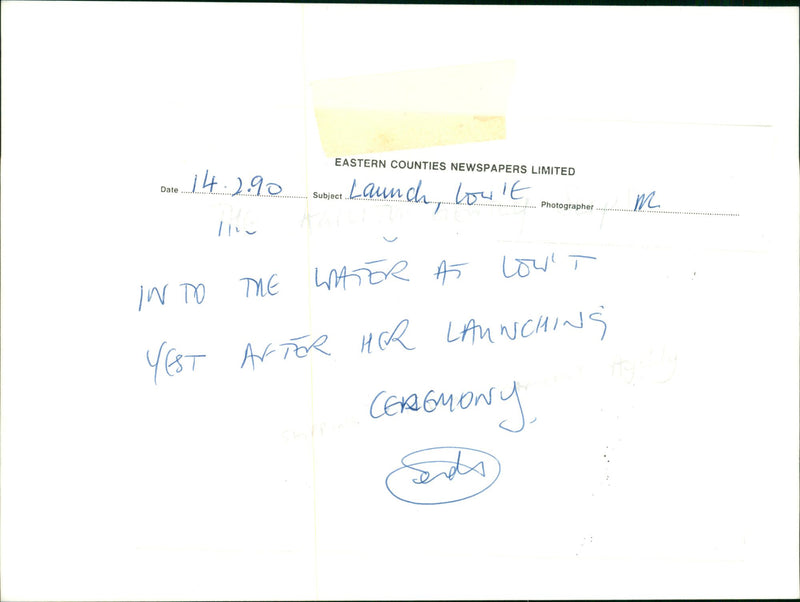 EASTERN COUNTIES NEWSPAPERS LIMITED
Date 14.2.90 Subject Launch, Low'E Photographer
INTO THE WATER AT LOW'T
YEST AFTER HER LAUNCHING
CEREMONY.
ends